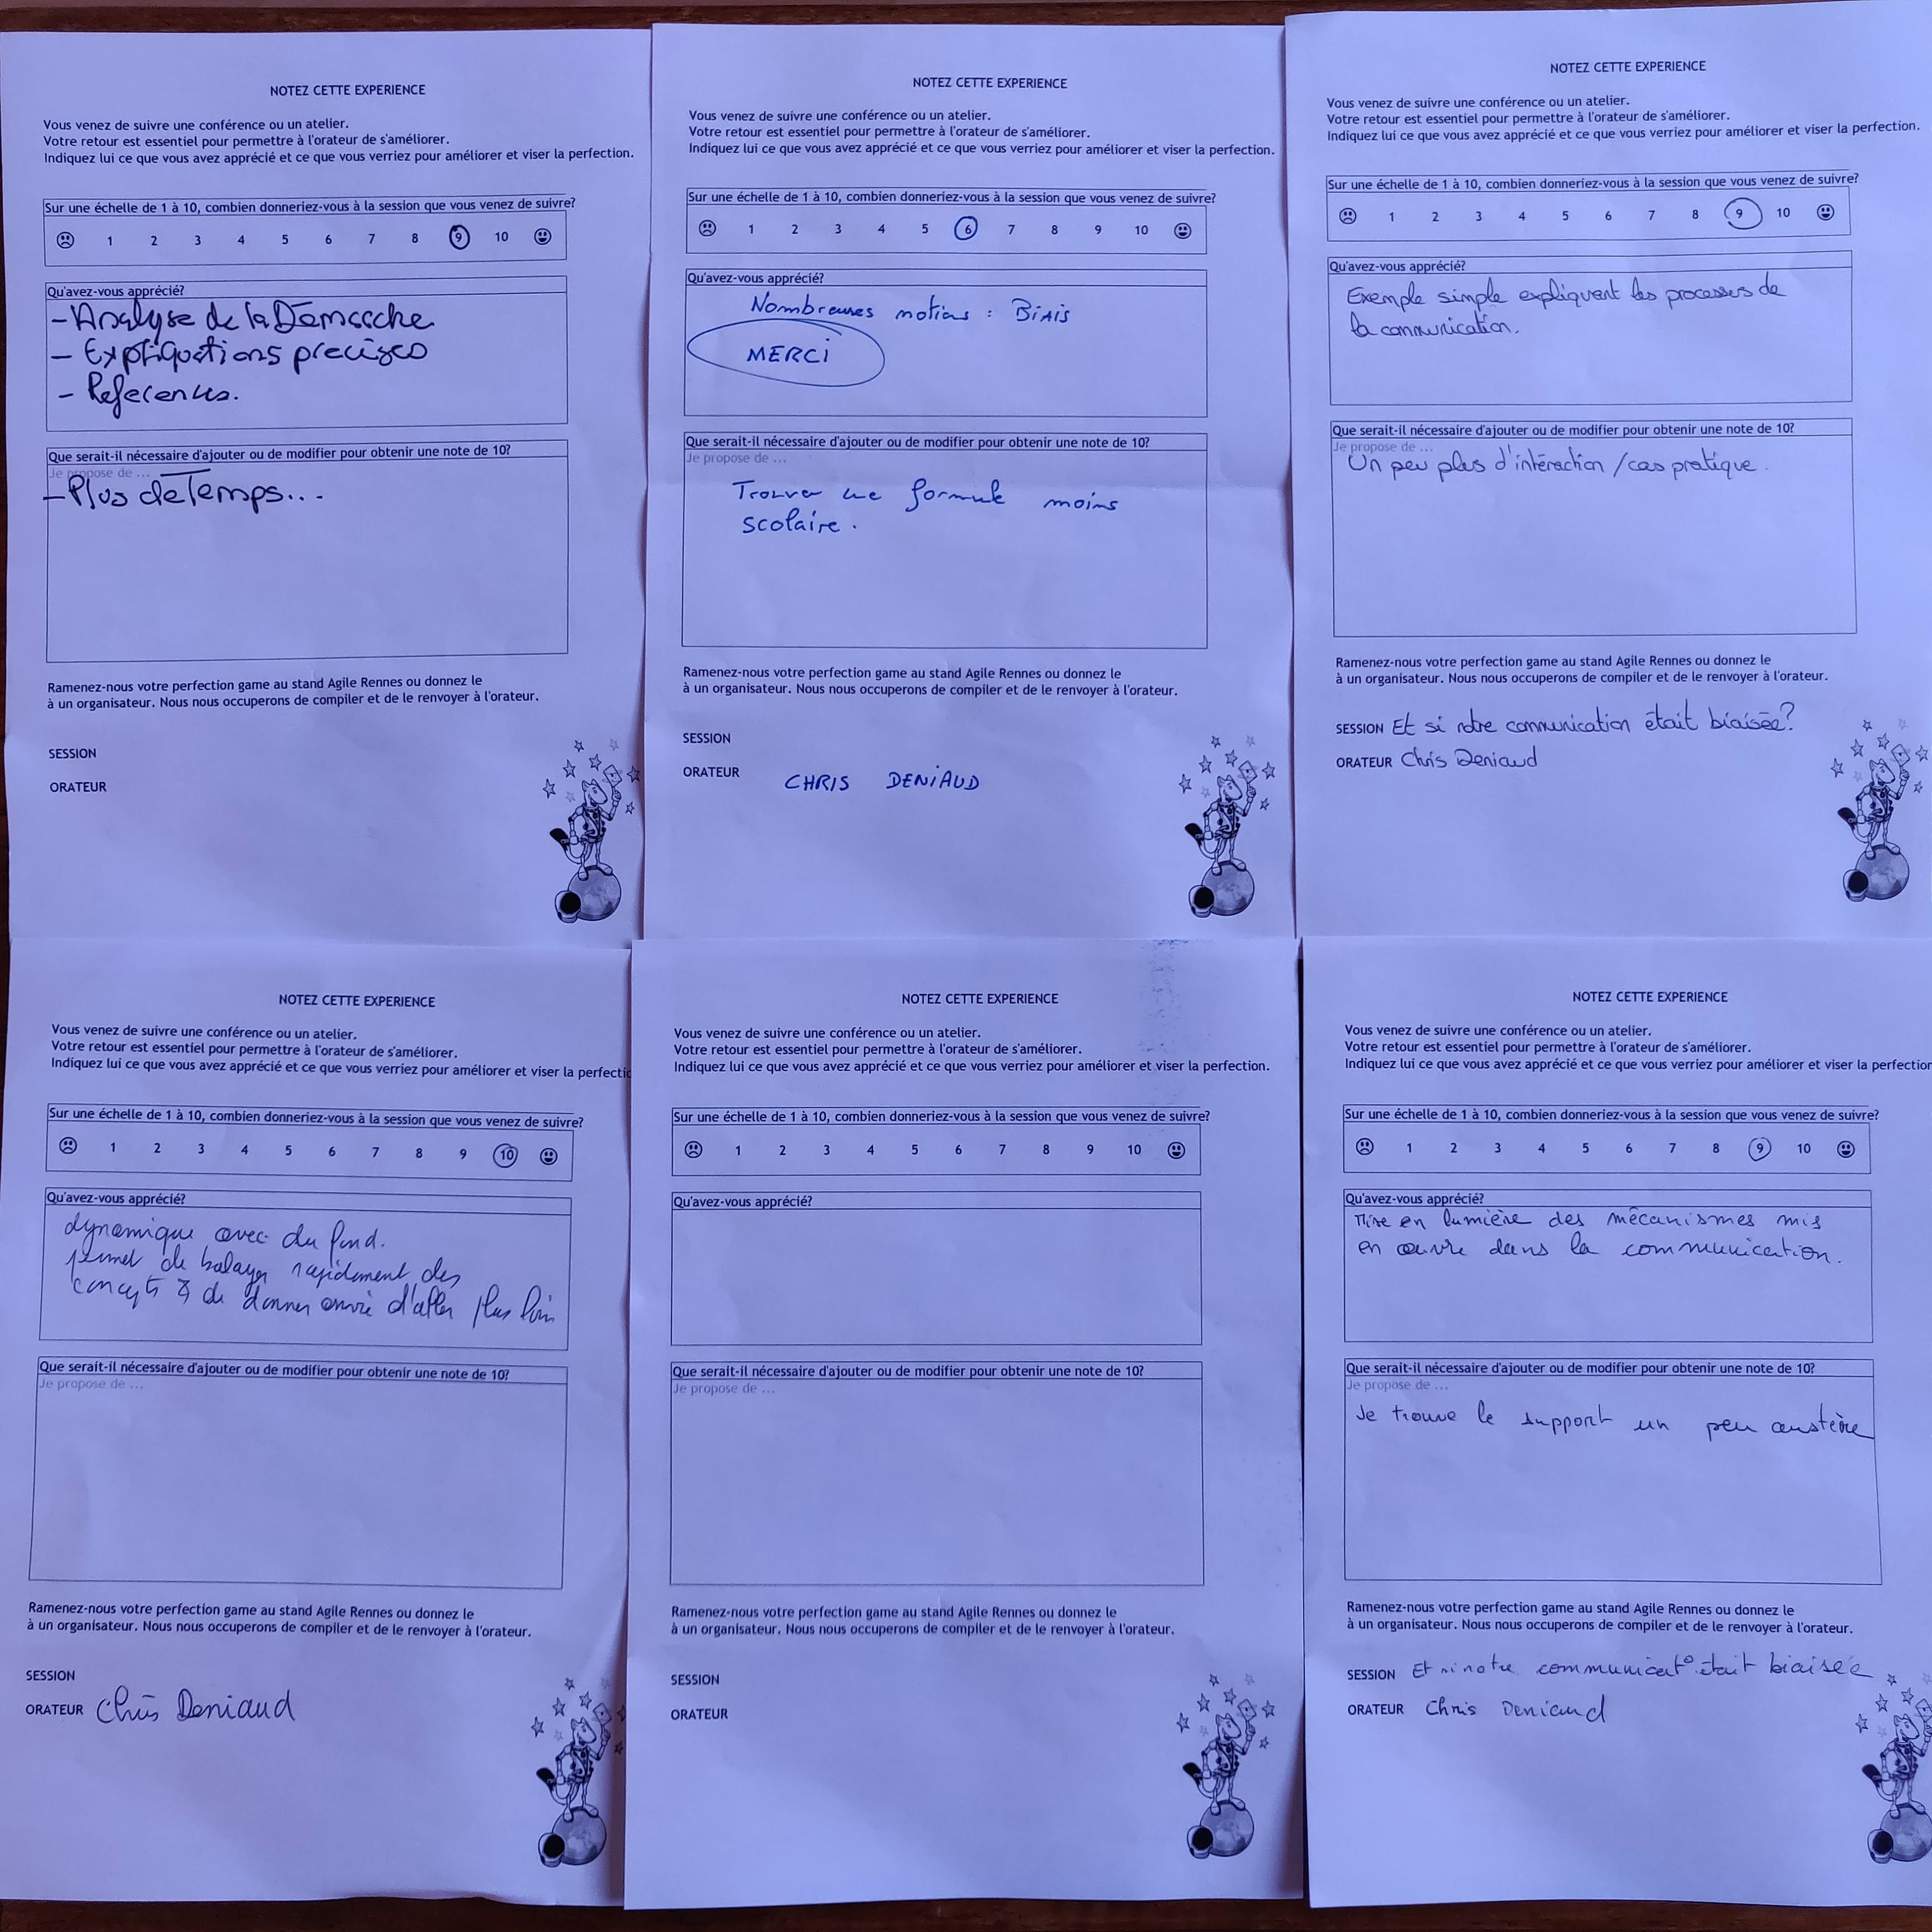 NOTEZ CETTE EXPERIENCE
Vous venez de suivre une conférence ou un atelier.
Votre retour est essentiel pour permettre à l'orateur de s'améliorer.
Indiquez lui ce que vous avez apprécié et ce que vous verriez pour améliorer et viser la perfection.
Sur une échelle de 1 à 10, combien donneriez-vous à la session que vous venez de suivre?
1 2 3 4 5 6 7 8 9 10
Qu'avez-vous apprécié?
- Analyse de la Démarche
- Expliquations precises
- References.
Que serait-il nécessaire d'ajouter ou de modifier pour obtenir une note de 10?
Je propose de ...
- Plus de Temps...
Ramenez-nous votre perfection game au stand Agile Rennes ou donnez le
à un organisateur. Nous nous occuperons de compiler et de le renvoyer à l'orateur.
SESSION
ORATEUR
NOTEZ CETTE EXPERIENCE
Vous venez de suivre une conférence ou un atelier.
Votre retour est essentiel pour permettre à l'orateur de s'améliorer.
Indiquez lui ce que vous avez apprécié et ce que vous verriez pour améliorer et viser la perfection.
Sur une échelle de 1 à 10, combien donneriez-vous à la session que vous venez de suivre?
1 2 3 4 5 6 7 8 9 10
Qu'avez-vous apprécié?
Nombreuses notions : BIAIS
MERCI
Que serait-il nécessaire d'ajouter ou de modifier pour obtenir une note de 10?
Je propose de ...
Trouver une formule moins
scolaire.
Ramenez-nous votre perfection game au stand Agile Rennes ou donnez le
à un organisateur. Nous nous occuperons de compiler et de le renvoyer à l'orateur.
SESSION
ORATEUR CHRIS DENIAUD
NOTEZ CETTE EXPERIENCE
Vous venez de suivre une conférence ou un atelier.
Votre retour est essentiel pour permettre à l'orateur de s'améliorer.
Indiquez lui ce que vous avez apprécié et ce que vous verriez pour améliorer et viser la perfection.
Sur une échelle de 1 à 10, combien donneriez-vous à la session que vous venez de suivre?
1 2 3 4 5 6 7 8 9 10
Qu'avez-vous apprécié?
Exemple simple expliquent les processus de
la communication.
Que serait-il nécessaire d'ajouter ou de modifier pour obtenir une note de 10?
Je propose de ...
Un peu plus d'intéraction / cas pratique.
Ramenez-nous votre perfection game au stand Agile Rennes ou donnez le
à un organisateur. Nous nous occuperons de compiler et de le renvoyer à l'orateur.
SESSION Et si notre communication était biaisée?
ORATEUR Chris Deniaud
NOTEZ CETTE EXPERIENCE
Vous venez de suivre une conférence ou un atelier.
Votre retour est essentiel pour permettre à l'orateur de s'améliorer.
Indiquez lui ce que vous avez apprécié et ce que vous verriez pour améliorer et viser la perfectio
Sur une échelle de 1 à 10, combien donneriez-vous à la session que vous venez de suivre?
1 2 3 4 5 6 7 8 9 10
Qu'avez-vous apprécié?
dynamique avec du fond.
permet de balayer rapidement des
concepts & de donner envie d'aller plus loin
Que serait-il nécessaire d'ajouter ou de modifier pour obtenir une note de 10?
Je propose de ...
Ramenez-nous votre perfection game au stand Agile Rennes ou donnez le
à un organisateur. Nous nous occuperons de compiler et de le renvoyer à l'orateur.
SESSION
ORATEUR Chris Deniaud
NOTEZ CETTE EXPERIENCE
Vous venez de suivre une conférence ou un atelier.
Votre retour est essentiel pour permettre à l'orateur de s'améliorer.
Indiquez lui ce que vous avez apprécié et ce que vous verriez pour améliorer et viser la perfection.
Sur une échelle de 1 à 10, combien donneriez-vous à la session que vous venez de suivre?
1 2 3 4 5 6 7 8 9 10
Qu'avez-vous apprécié?
Que serait-il nécessaire d'ajouter ou de modifier pour obtenir une note de 10?
Je propose de ...
Ramenez-nous votre perfection game au stand Agile Rennes ou donnez le
à un organisateur. Nous nous occuperons de compiler et de le renvoyer à l'orateur.
SESSION
ORATEUR
NOTEZ CETTE EXPERIENCE
Vous venez de suivre une conférence ou un atelier.
Votre retour est essentiel pour permettre à l'orateur de s'améliorer.
Indiquez lui ce que vous avez apprécié et ce que vous verriez pour améliorer et viser la perfection
Sur une échelle de 1 à 10, combien donneriez-vous à la session que vous venez de suivre?
1 2 3 4 5 6 7 8 9 10
Qu'avez-vous apprécié?
Mise en lumière des mécanismes mis
en œuvre dans la communication.
Que serait-il nécessaire d'ajouter ou de modifier pour obtenir une note de 10?
Je propose de ...
Je trouve le support un peu austère
Ramenez-nous votre perfection game au stand Agile Rennes ou donnez le
à un organisateur. Nous nous occuperons de compiler et de le renvoyer à l'orateur.
SESSION Et si notre communicat° était biaisée
ORATEUR Chris Deniaud